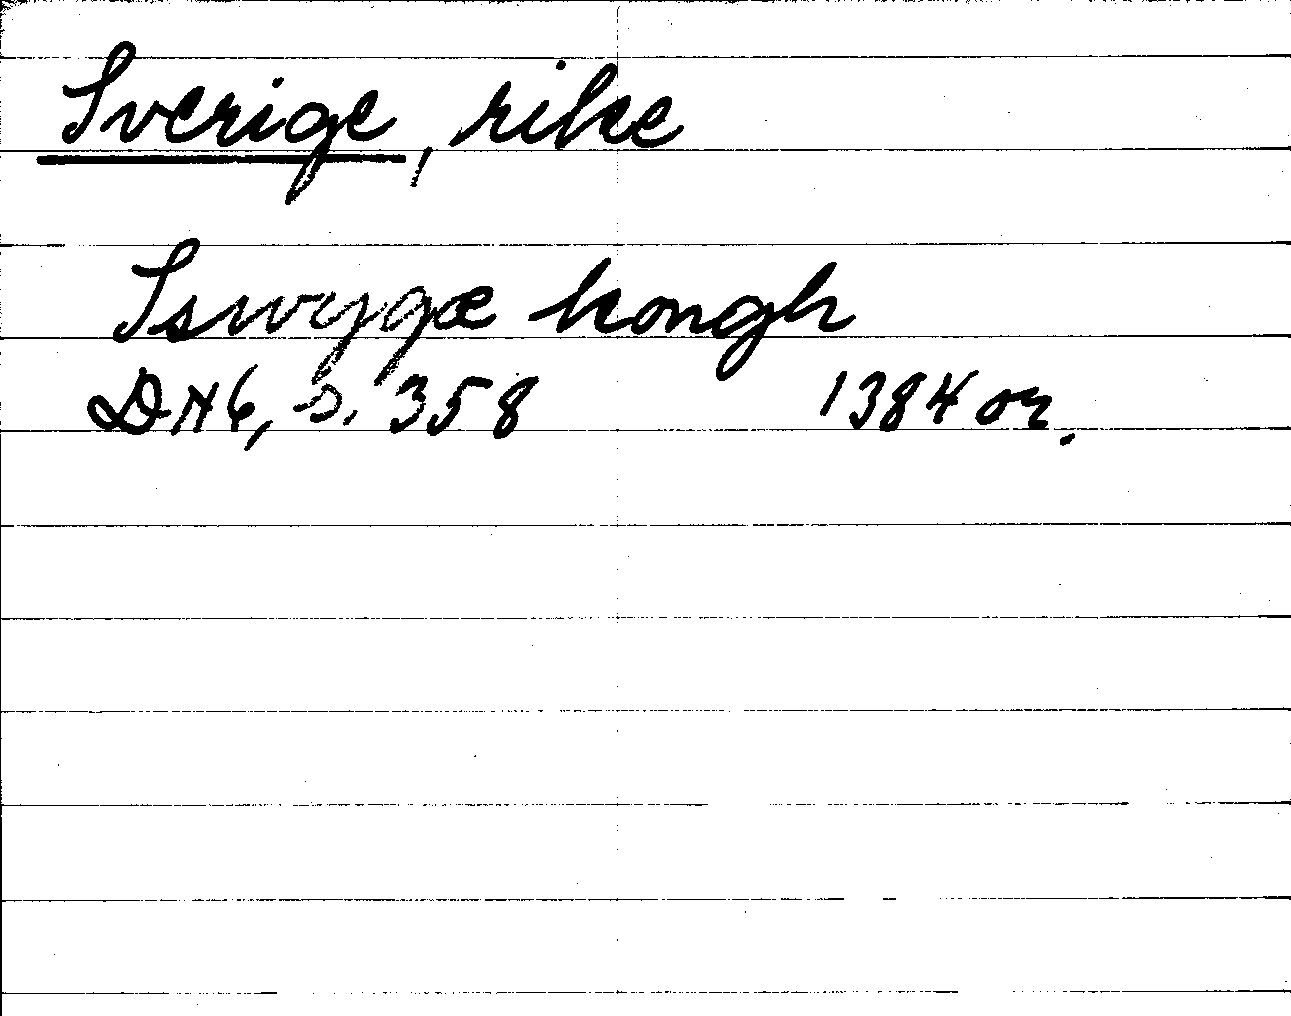 Sverige, rike
Sswygæ kongh
DN6, s. 358 1384 or.